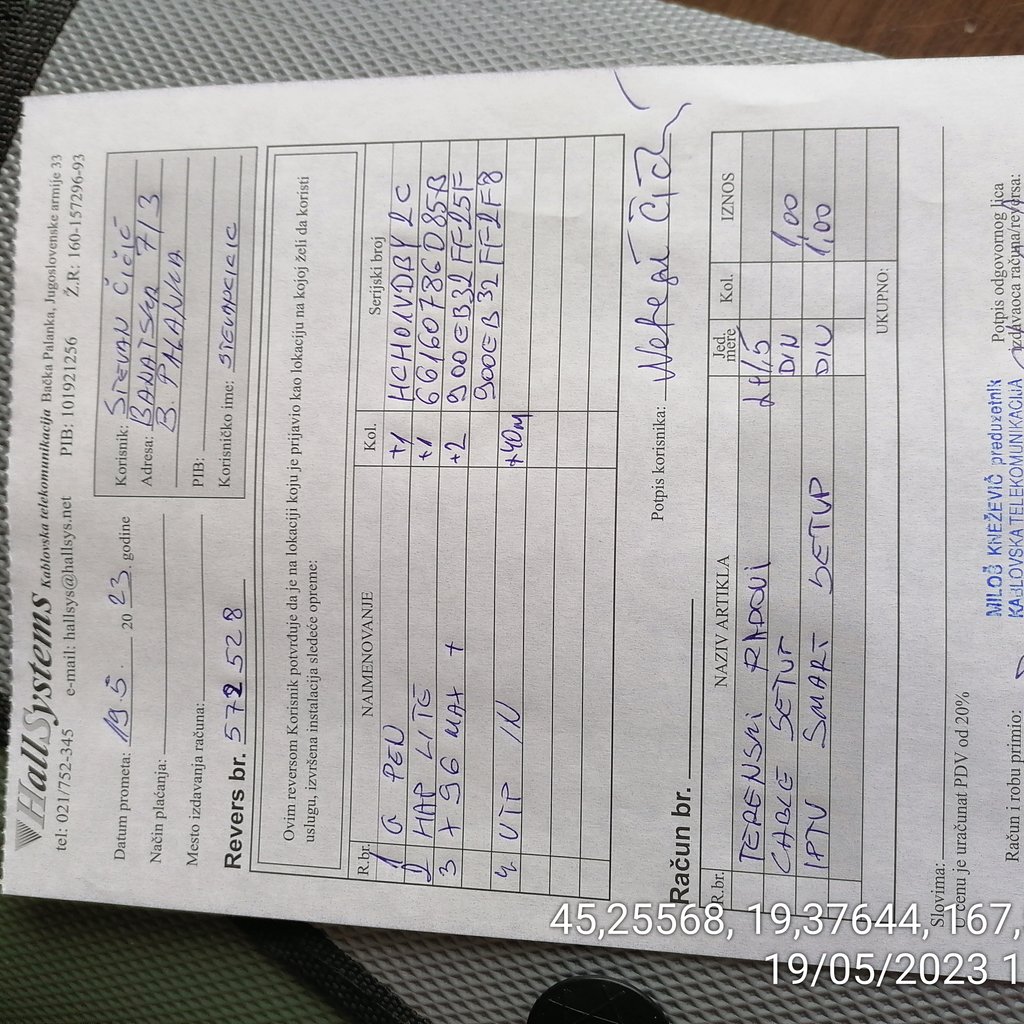 HallSystems Kablovska telekomunikacija Bačka Palanka, Jugoslovenske armije 33
tel: 021/752-345 e-mail: hallsys@hallsys.net PIB: 101921256 Ž.R: 160-157296-93
Datum prometa: 19 5 2023. godine
Način plaćanja:
Mesto izdavanja računa:
Revers br. 572528
Korisnik: STEVAN ČIČIĆ
Adresa: BANATSKA 7/3
B. PALANKA
PIB:
Korisničko ime:
Ovim reversom Korisnik potvrđuje da je na lokaciji koju je prijavio kao lokaciju na kojoj želi da koristi
uslugu, izvršena instalacija sledeće opreme:
R.br. NAIMENOVANJE Kol. Serijski broj
1 G PEN +1
2 HAP LITE +1 66160786D85B
3 X96 MAX + +2 900EB32FF25F
900EB32FF2F8
4 UTP IN +40m
Potpis korisnika:
Račun br.
R.br. NAZIV ARTIKLA Jed. mere Kol. IZNOS
TERENSKI RADOVI
CABLE SETUP DIN 1,00
IPTV SMART SETUP DIN 1,00
UKUPNO:
Slovima:
U cenu je uračunat PDV od 20%
Račun i robu primio:
Potpis odgovornog lica
izdavaoca računa/reversa:
MILOŠ KNEŽEVIĆ preduzetnik
KABLOVSKA TELEKOMUNIKACIJA
45,25568, 19,37644, 167,
19/05/2023 1